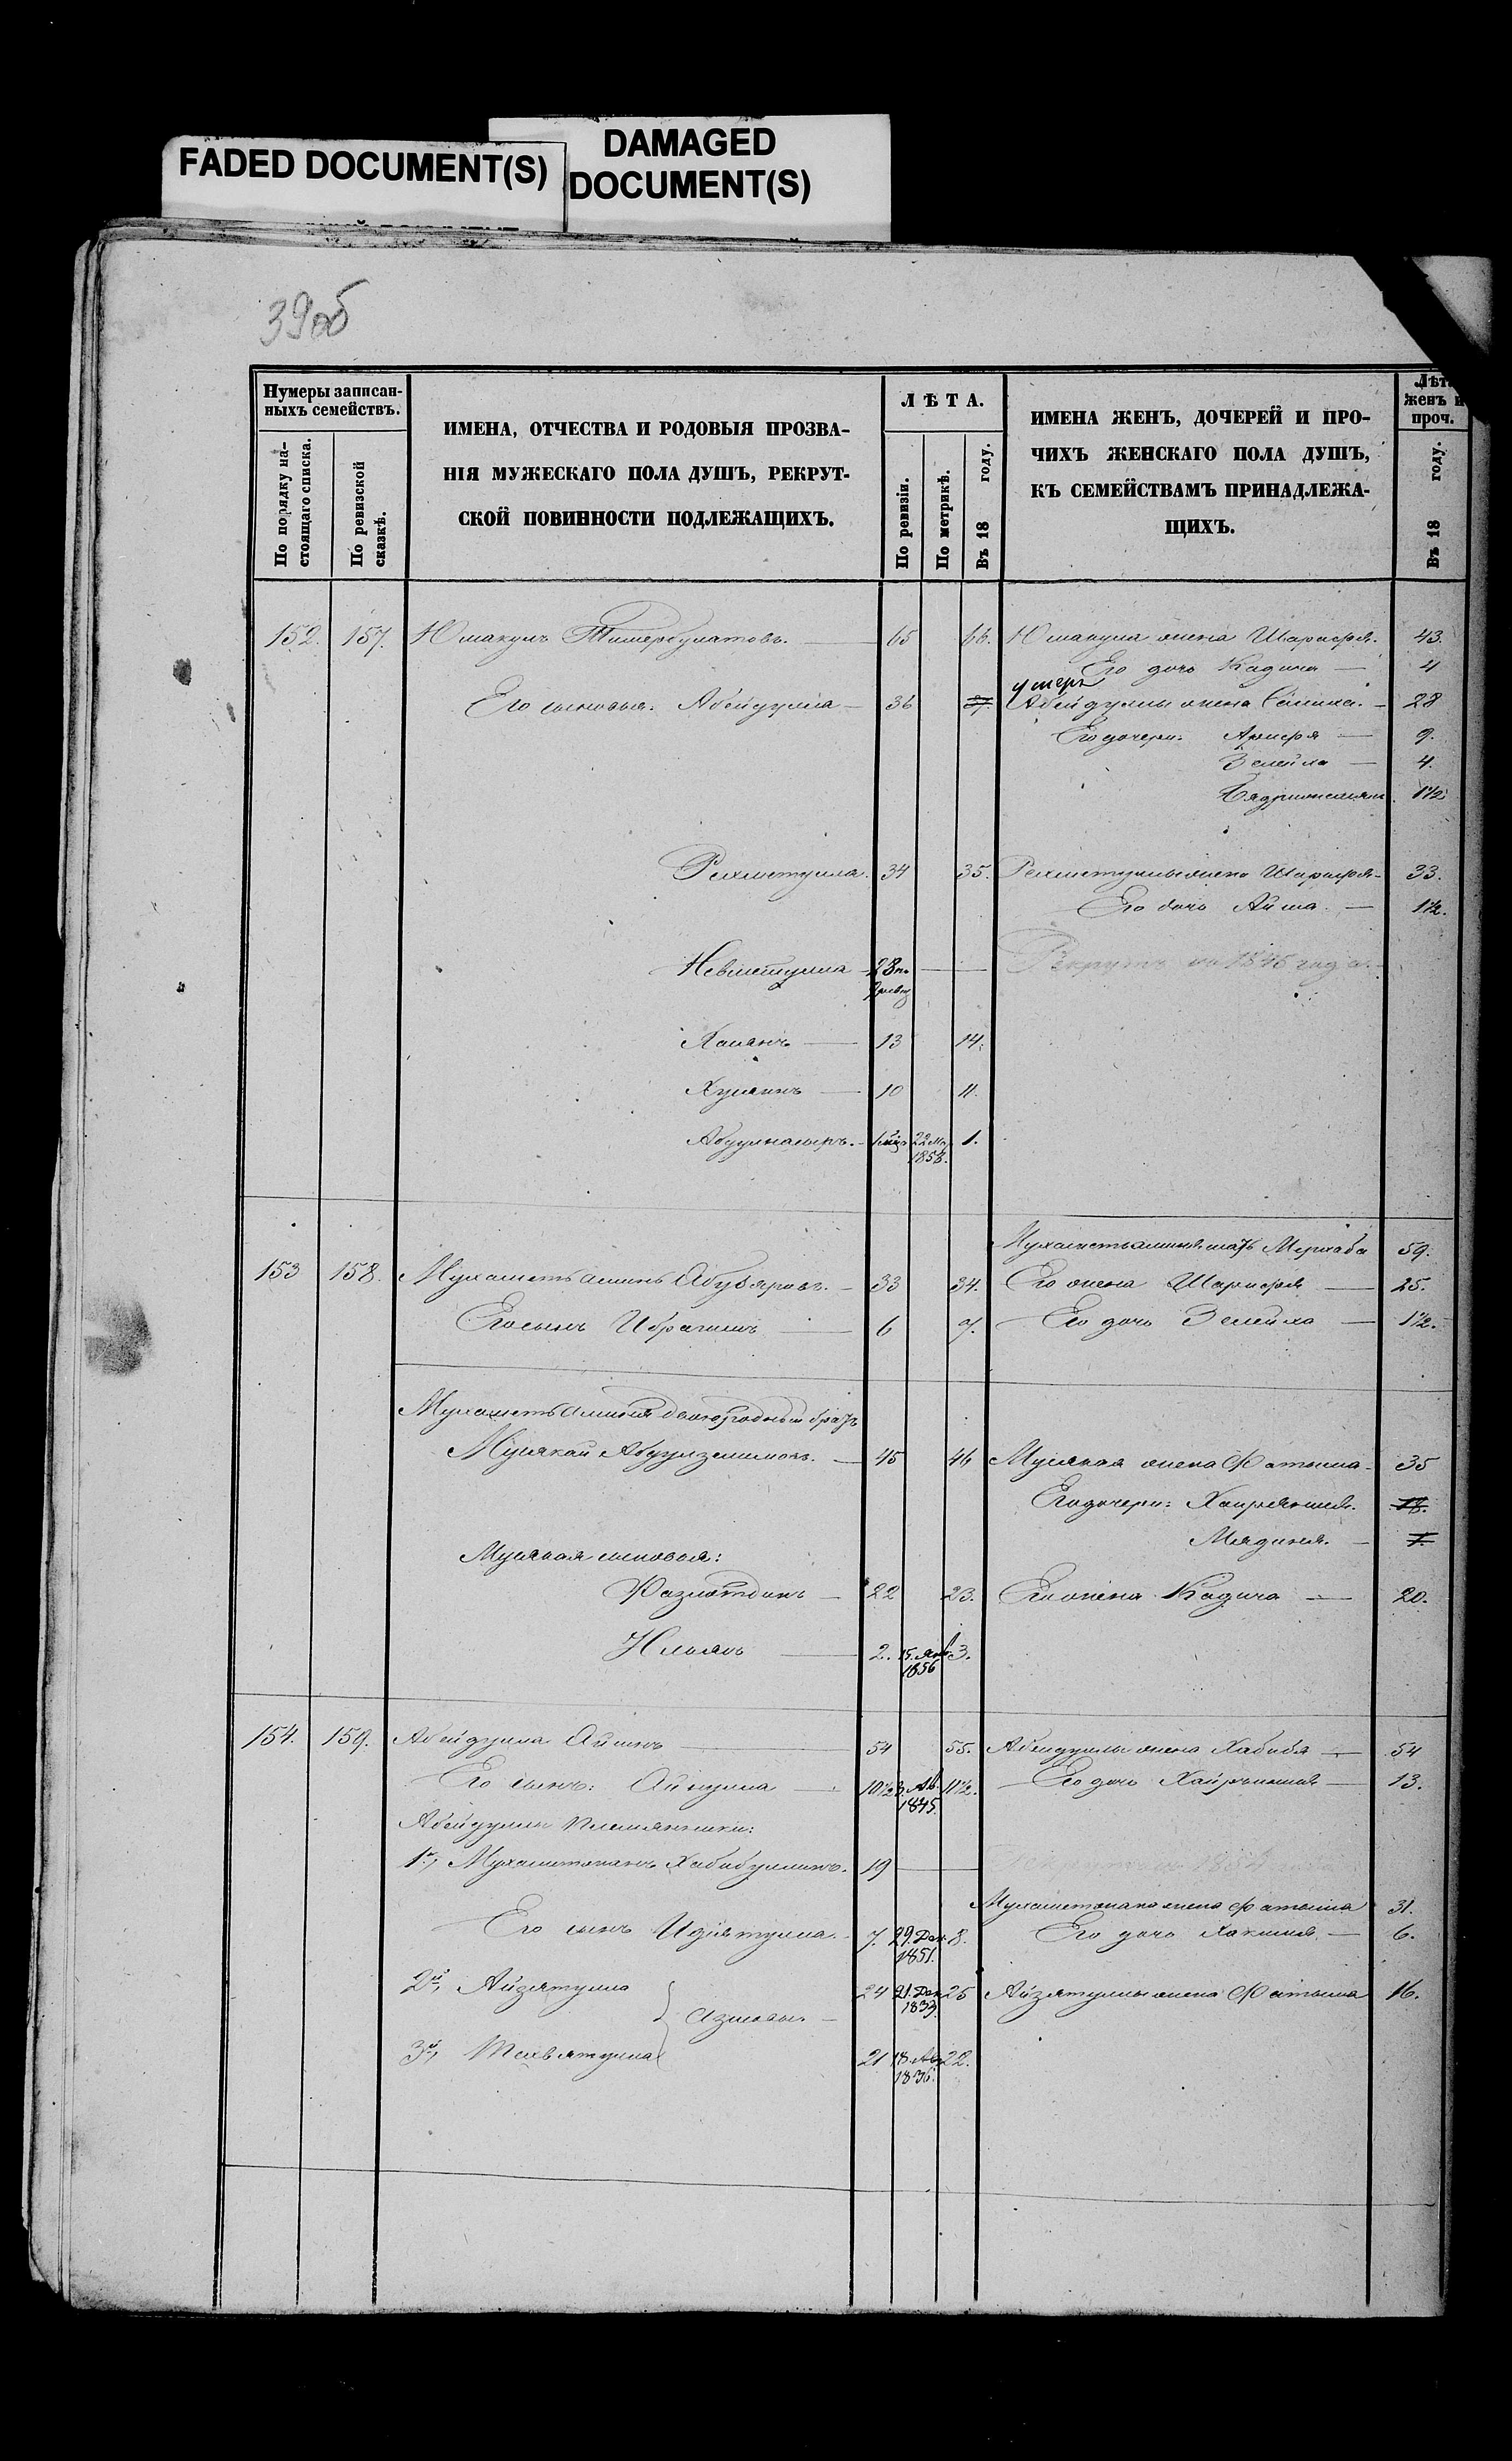 FADED DOCUMENT(S)
DAMAGED
DOCUMENT(S)
39об
Нумеры записан-
ныхъ семействъ.
По порядку на-
стоящаго списка.
По ревизской
сказкѣ.
ИМЕНА, ОТЧЕСТВА И РОДОВЫЯ ПРОЗВА-
НІЯ МУЖЕСКАГО ПОЛА ДУШЪ, РЕКРУТ-
СКОЙ ПОВИННОСТИ ПОДЛЕЖАЩИХЪ.
ЛѢТА.
По ревизіи.
По метрикѣ.
Въ 18 году.
ИМЕНА ЖЕНЪ, ДОЧЕРЕЙ И ПРО-
ЧИХЪ ЖЕНСКАГО ПОЛА ДУШЪ,
КЪ СЕМЕЙСТВАМЪ ПРИНАДЛЕЖА-
ЩИХЪ.
Лѣта
женъ и
проч.
Въ 18 году.
152. 157. Юмакулъ Тимербулатовъ. — 65 66. Юмакула жена Шарифя. 43.
Его дочь Кадима — 4
умеръ
Его сыновья: Абейдулла — 36 37. Абейдуллы жена Салиха. — 28
Его дочери: Арифя — 9.
Зелейха — 4.
1½
Рахметулла. 34 35. Рахметуллы жена Шарифя — 33.
Его дочь Айша. — 1½.
Невметулла — 28 — — Рекрутъ 1846 года.
Хасянъ — 13 14.
Хусяинъ — 10 11.
Абдулнасыръ. — 22 Мар. 1.
1858.
Мухаметьаминя мать Мухаба 59.
153 158. Мухаметьаминь Абубяровъ. — 33 34. Его жена Шарифя — 25.
Его сынъ Ибрагимъ — 6 7. Его дочь Зелейха — 1½.
Мухаметьаминя двоюродный братъ
Мусякай Абдулзелимовъ. — 45 46 Мусякая жена Фатыма. 35
Его дочери: Хаирянися. 18.
Мядиня. — 7.
Мусякая сыновья:
Фазлотдинъ — 22 23. Его жена Кадича — 20.
Ильянъ — 2. 15. Янв. 3.
1856
154. 159. Абейдулла Аитовъ — 54 55. Абейдуллы жена Хабибя — 54
Его сынъ: Айнулла — 10½ 3. Ав. 11½. Его дочь Хайрниса — 13.
1845.
Абейдуллы племянники:
1й, Мухаметжанъ Хабибуллинъ. 19 — 1854
Мухаметжана жена Фатыма 31.
Его сынъ Идіятулла. 7. 29. Дек. 8. Его дочь Хакимя. — 6.
1851.
2й, Айзятулла 24 21. Дек. 25 Айзятуллы жена Фатыма 16.
1833.
Азмовы. —
3й, 21 18. Ав. 22.
1836.